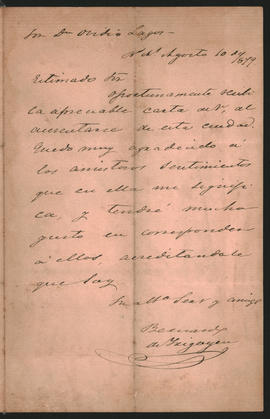 Sor Dn Ovidio Lagos
Agosto 10 de/879
Estimado Sor
Oportunamente recibi
la apreciable carta de V. al
ausentarse de esta ciudad.
Quedo muy agradecido á
los amistosos sentimientos
que en ella me signifi
ca, y tendré mucho
gusto en corresponder
á ellos, acreditandole
que soy
Su Mo Servr y amigo
Bernardo
de Irigoyen